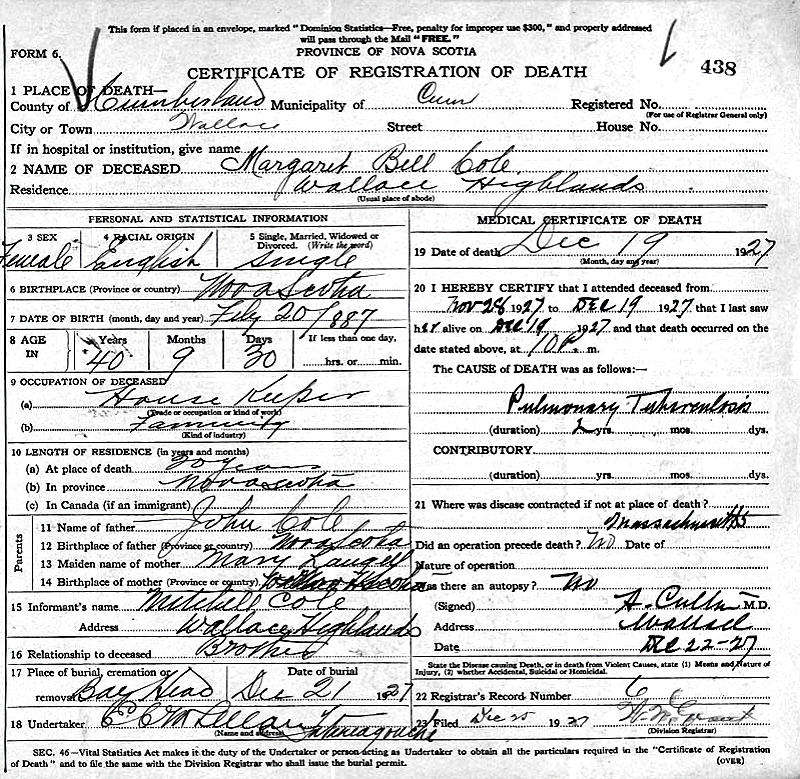 This form if placed in an envelope, marked "Dominion Statistics—Free, penalty for improper use $300," and properly addressed
will pass through the Mail "FREE."
FORM 6.
PROVINCE OF NOVA SCOTIA
CERTIFICATE OF REGISTRATION OF DEATH
438
1 PLACE OF DEATH—
County of Cumberland Municipality of Cum Registered No.
(For use of Registrar General only)
City or Town Wallace Street House No.
If in hospital or institution, give name
2 NAME OF DECEASED Margaret Bell Cole
Residence Wallace Highlands
(Usual place of abode)
PERSONAL AND STATISTICAL INFORMATION
3 SEX 4 RACIAL ORIGIN 5 Single, Married, Widowed or
Divorced. (Write the word)
Female English Single
6 BIRTHPLACE (Province or country) Nova Scotia
7 DATE OF BIRTH (month, day and year) Feby 20/1887
8 AGE IN Years Months Days If less than one day,
40 9 30 hrs. or min.
9 OCCUPATION OF DECEASED
(a) House Keeper
(Trade or occupation or kind of work)
(b)
(Kind of industry)
10 LENGTH OF RESIDENCE (in years and months)
(a) At place of death 30 years
(b) In province Nova Scotia
(c) In Canada (if an immigrant)
Parents
11 Name of father John Cole
12 Birthplace of father (Province or country) Nova Scotia
13 Maiden name of mother Mary
14 Birthplace of mother (Province or country) Scotia
15 Informant's name Mitchell Cole
Address Wallace Highlands
16 Relationship to deceased Brother
17 Place of burial, cremation or Date of burial
removal Bay Head Dec 21 1927
18 Undertaker Tatamagouche
(Name and address)
MEDICAL CERTIFICATE OF DEATH
19 Date of death Dec 19 1927
(Month, day and year)
20 I HEREBY CERTIFY that I attended deceased from
Nov 28 1927 to DEC 19 1927 that I last saw
her alive on DEC 19 1927 and that death occurred on the
date stated above, at 10 P. m.
The CAUSE of DEATH was as follows:—
Pulmonary Tuberculosis
(duration) 2 yrs. mos. dys.
CONTRIBUTORY
(duration) yrs. mos. dys.
21 Where was disease contracted if not at place of death?
Massachusetts
Did an operation precede death? No Date of
Nature of operation
Was there an autopsy? No
(Signed) M.D.
Address Wallace
Date DEC 22-27
State the Disease causing Death, or in death from Violent Causes, state (1) Means and Nature of
Injury, (2) whether Accidental, Suicidal or Homicidal.
22 Registrar's Record Number 6
23 Filed Dec 25 1927
(Division Registrar)
SEC. 46—Vital Statistics Act makes it the duty of the Undertaker or person acting as Undertaker to obtain all the particulars required in the "Certificate of Registration
of Death" and to file the same with the Division Registrar who shall issue the burial permit.
(OVER)